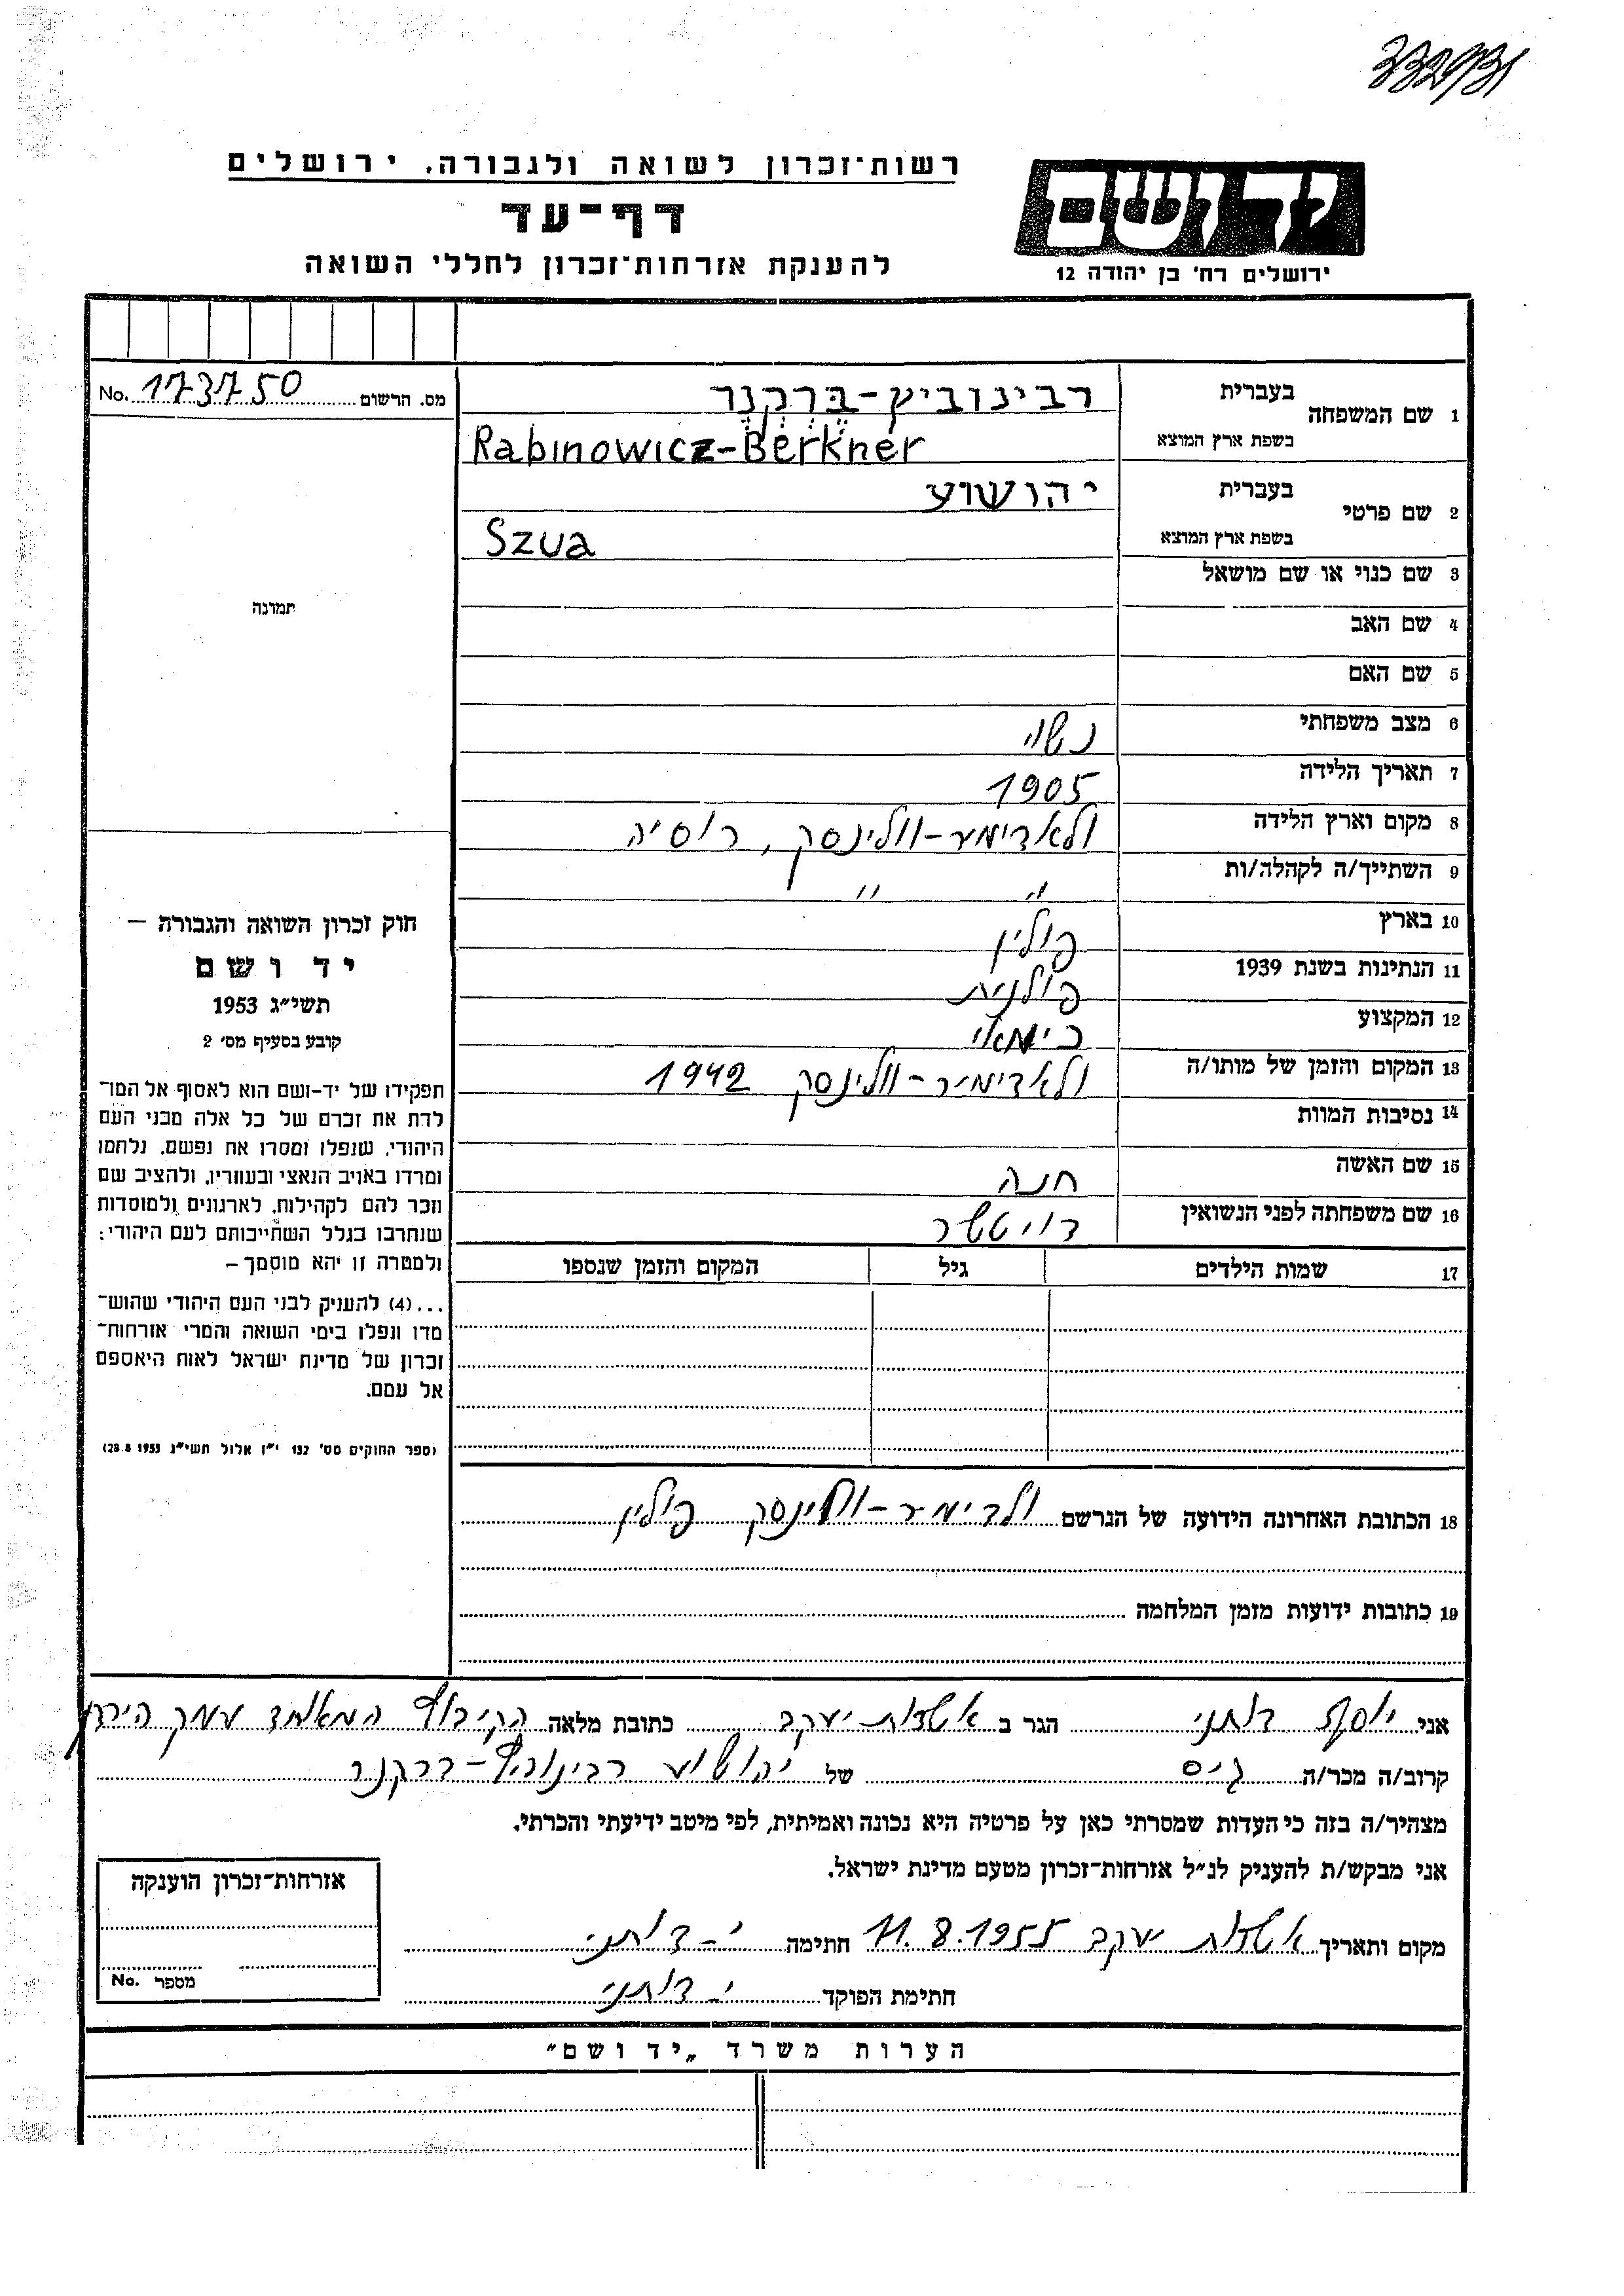 רשות־זכרון לשואה ולגבורה, ירושלים
יד ושם
דף־עד
ירושלים רח' בן יהודה 12
להענקת אזרחות־זכרון לחללי השואה
מס. הרשום 173750 No.
1 שם המשפחה בעברית רבינוביץ-בֶּרְקְנֶר
בשפת ארץ המוצא Rabinowicz-Berkner
2 שם פרטי בעברית יהושוע
בשפת ארץ המוצא Szua
3 שם כנוי או שם מושאל
תמונה
4 שם האב
5 שם האם
6 מצב משפחתי נשוי
7 תאריך הלידה 1905
8 מקום וארץ הלידה ולאדימיר-וולינסק, רוסיה
9 השתייך/ה לקהלה/ות " "
10 בארץ פולין
11 הנתינות בשנת 1939 פולנית
12 המקצוע כימאי
13 המקום והזמן של מותו/ה ולאדימיר-וולינסק 1942
14 נסיבות המוות
15 שם האשה חנה
16 שם משפחתה לפני הנשואין דויטשר
17 שמות הילדים גיל המקום והזמן שנספו
חוק זכרון השואה והגבורה —
יד ושם
תשי״ג 1953
קובע בסעיף מס' 2
תפקידו של יד-ושם הוא לאסוף אל המו־
לדת את זכרם של כל אלה מבני העם
היהודי, שנפלו ומסרו את נפשם, נלחמו
ומרדו באויב הנאצי ובעוזריו, ולהציב שם
וזכר להם לקהילות, לארגונים ולמוסדות
שנחרבו בגלל השתייכותם לעם היהודי;
ולמטרה זו יהא מוסמך —
...(4) להעניק לבני העם היהודי שהוש־
מדו ונפלו בימי השואה והמרי אזרחות־
זכרון של מדינת ישראל לאות היאספם
אל עמם.
(ספר החוקים מס' 132 י״ז אלול תשי״ג 28.8.1953)
18 הכתובת האחרונה הידועה של הנרשם ולדימיר-וולינסק פולין
19 כתובות ידועות מזמן המלחמה
אני יוסף דותני הגר ב אשדות יעקב כתובת מלאה הקיבוץ המאוחד עמק הירדן
קרוב/ה מכר/ה גיס של יהושוע רבינוביץ-ברקנר
מצהיר/ה בזה כי העדות שמסרתי כאן על פרטיה היא נכונה ואמיתית, לפי מיטב ידיעתי והכרתי.
אני מבקש/ת להעניק לנ״ל אזרחות־זכרון מטעם מדינת ישראל.
מקום ותאריך אשדות יעקב 11.8.1955 חתימה י-דותני
חתימת הפוקד י-דותני
אזרחות־זכרון הוענקה
מספר No.
הערות משרד „יד ושם״